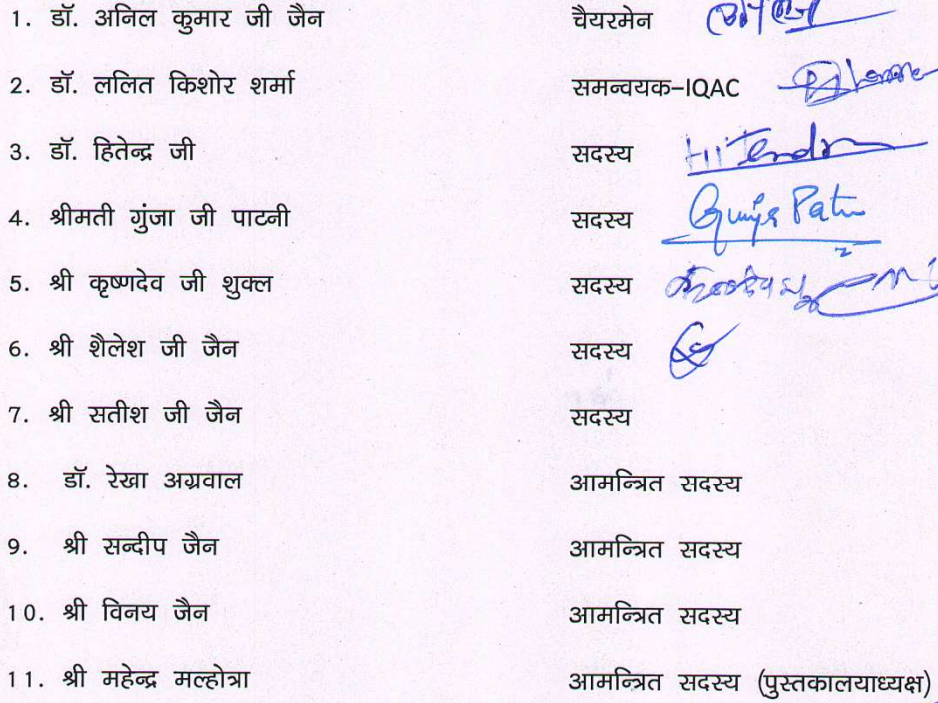 1. डॉ. अनिल कुमार जी जैन चैयरमेन
2. डॉ. ललित किशोर शर्मा समन्वयक-IQAC
3. डॉ. हितेन्द्र जी सदस्य Hitendra
4. श्रीमती गुंजा जी पाटनी सदस्य Gunja Patni
5. श्री कृष्णदेव जी शुक्ल सदस्य
6. श्री शैलेश जी जैन सदस्य
7. श्री सतीश जी जैन सदस्य
8. डॉ. रेखा अग्रवाल आमन्त्रित सदस्य
9. श्री सन्दीप जैन आमन्त्रित सदस्य
10. श्री विनय जैन आमन्त्रित सदस्य
11. श्री महेन्द्र मल्होत्रा आमन्त्रित सदस्य (पुस्तकालयाध्यक्ष)